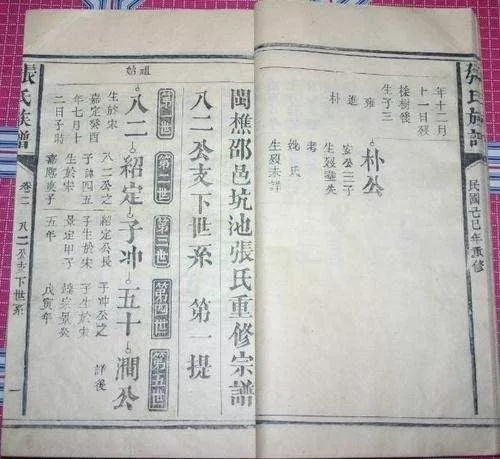 張氏族譜
民國己巳年重修
年十二月
十一日歿
生子三
雍
進
朴
朴公
安公三子
生歿葬失
考
氏
生歿未詳
閩樵邵邑坑池張氏重修宗譜
八二公支下世系 第一提
第一世 第二世 第三世 第四世 第五世
始祖
八二 紹定 子冲 五十 澗公
生於宋
嘉定癸酉
年七月十
二日子時
八二公之
子諱四五
生於宋
紹定公長
子生於宋
景定甲子
五年
子冲公之
子生於宋
戊寅年
詳後
張氏族譜
卷二
八二公支下世系
一